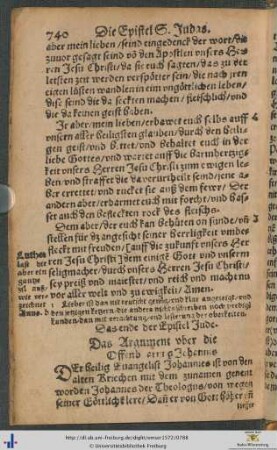 740 Die Epistel S. Judas.
aber mein lieben/ seind eingedenck der wort/ die
zuuor gesagt seind von den Apostlen unsers Her
ren Jesu Christi/ da sie euch sagten/ das zu der
letsten zeit werden verspötter sein/ die nach jren
eignen lüsten wandlen in ungötlichen leben/
dise seind die da seckten machen/ fleischlich/ und
die da keinen geist haben.
Jr aber/ mein lieben/ erbawet euch selbs auff
unsern aller heiligsten glauben/ durch den Heili-
gen geist/ und bettet/ und behaltet euch in der
liebe Gottes/ und wartet auff die barmhertzig
keit unsers Herren Jesu Christi zum ewigen le-
ben/ und straffet die da verurtheilt seind/ jene a-
ber errettet/ und rucket sie auß dem fewer/ Der
andern aber erbarmet euch mit forcht/ und has-
set auch den befleckten rock des fleischs.
Dem aber/ der euch kan behüten on sünde/
stellen für das angesicht seiner herrligkeit unbe
fleckt mit freuden/ auff die zukunfft unsers Her
ren Jesu Christi dem einigen Gott und unserm
seligmacher/ durch unsern Herren Jesu Christ/
sey preiß und maiestet/ und reich und macht
vor aller welt und zu ewigkeit/ Amen.
Das ende der Epistel Jude.
Das Argument uber die
Offenbarung Johannis
Der heilig Euangelist Johannes ist von den
alten Kriechen mit dem zunamen genent
worden Johannes der Theologus/ von wegen
seiner Göttlichkeit/ Daß er von Gott höher
http://dl.ub.uni-freiburg.de/diglit/emser1572/0788
© Universitätsbibliothek Freiburg